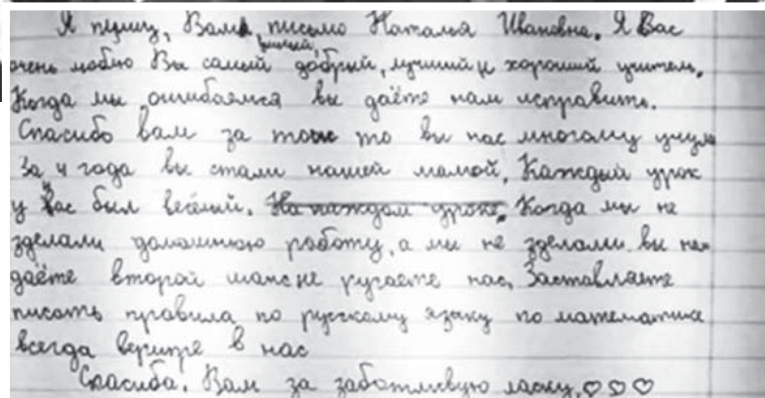 Я пишу, Вам, письмо Наталья Ивановна. Я Вас
очень люблю Вы самый добрый, лучший и хороший учитель.
Когда мы ошибаемся вы даёте нам исправить.
Спасибо вам за то что вы нас многому учили
За 4 года вы стали нашей мамой. Каждый урок
у Вас был весёлый. На каждом уроке. Когда мы не
зделали домашнюю работу, а мы не зделали вы нам
даёте второй шанс не ругаете нас. Заставляете
писать правила по русскому языку по математике
всегда верите в нас
Спасиба. Вам за заботливую ласку. ♡♡♡